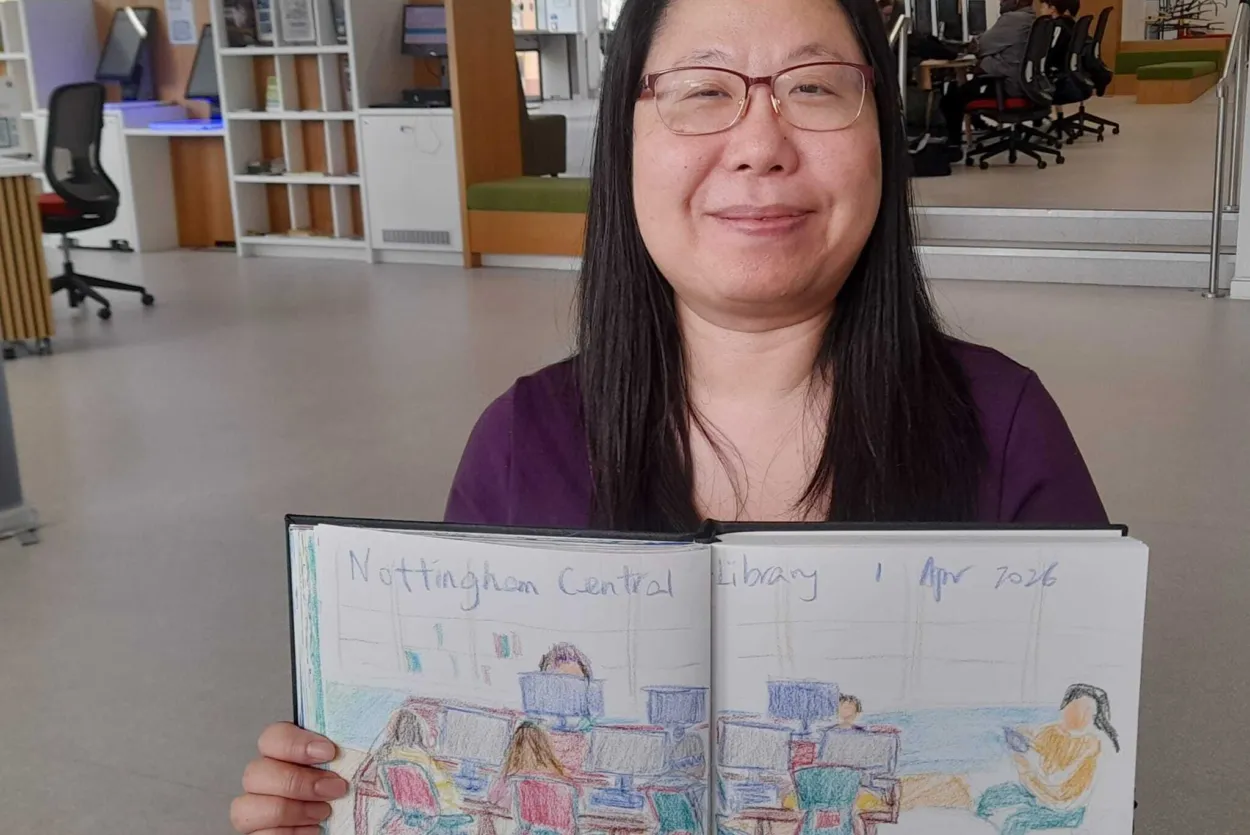 Nottingham Central Library 1 Apr 2026